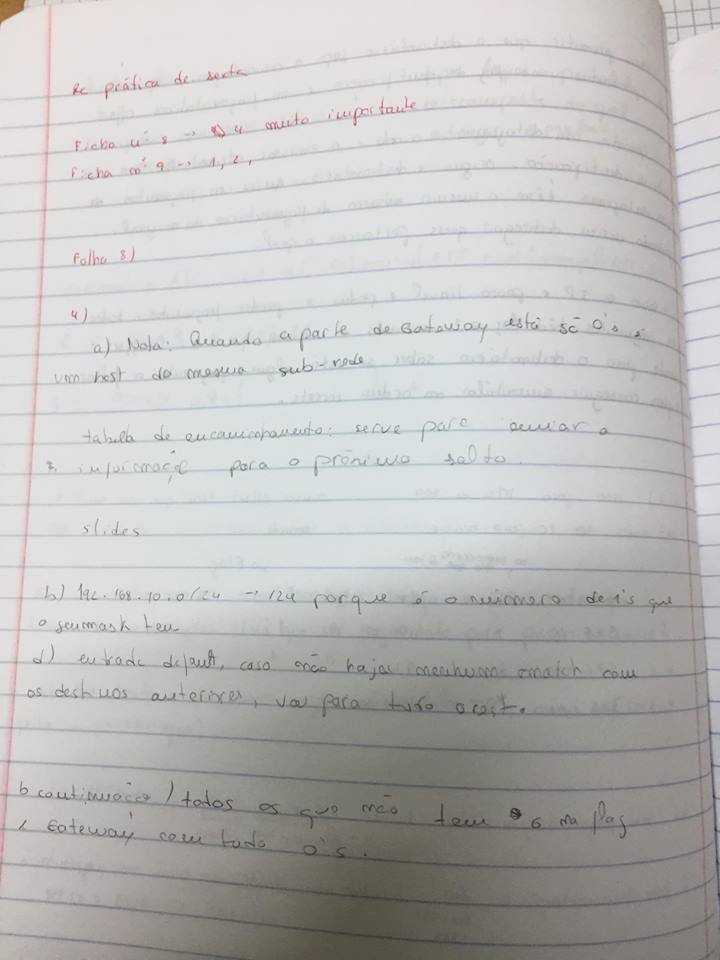 Rc prática de sexta
Ficha nº 8 -> 4 muito importante
Ficha nº 9 -> 1, 2,
Folha 8)
4)
a) Nota: Quando a parte de Gateway está só 0's, é
um host da mesma sub-rede
tabela de encaminhamento: serve para enviar a
informação para o próximo salto.
slides
b) 192.168.10.0/24 -> /24 porque é o número de 1's que
o genmask tem
d) entrada default, caso não haja nenhum match com
os destinos anteriores, vai para tudo o rest.
b continuação) todos os que não tem G na flag
e Gateway com tudo 0's.